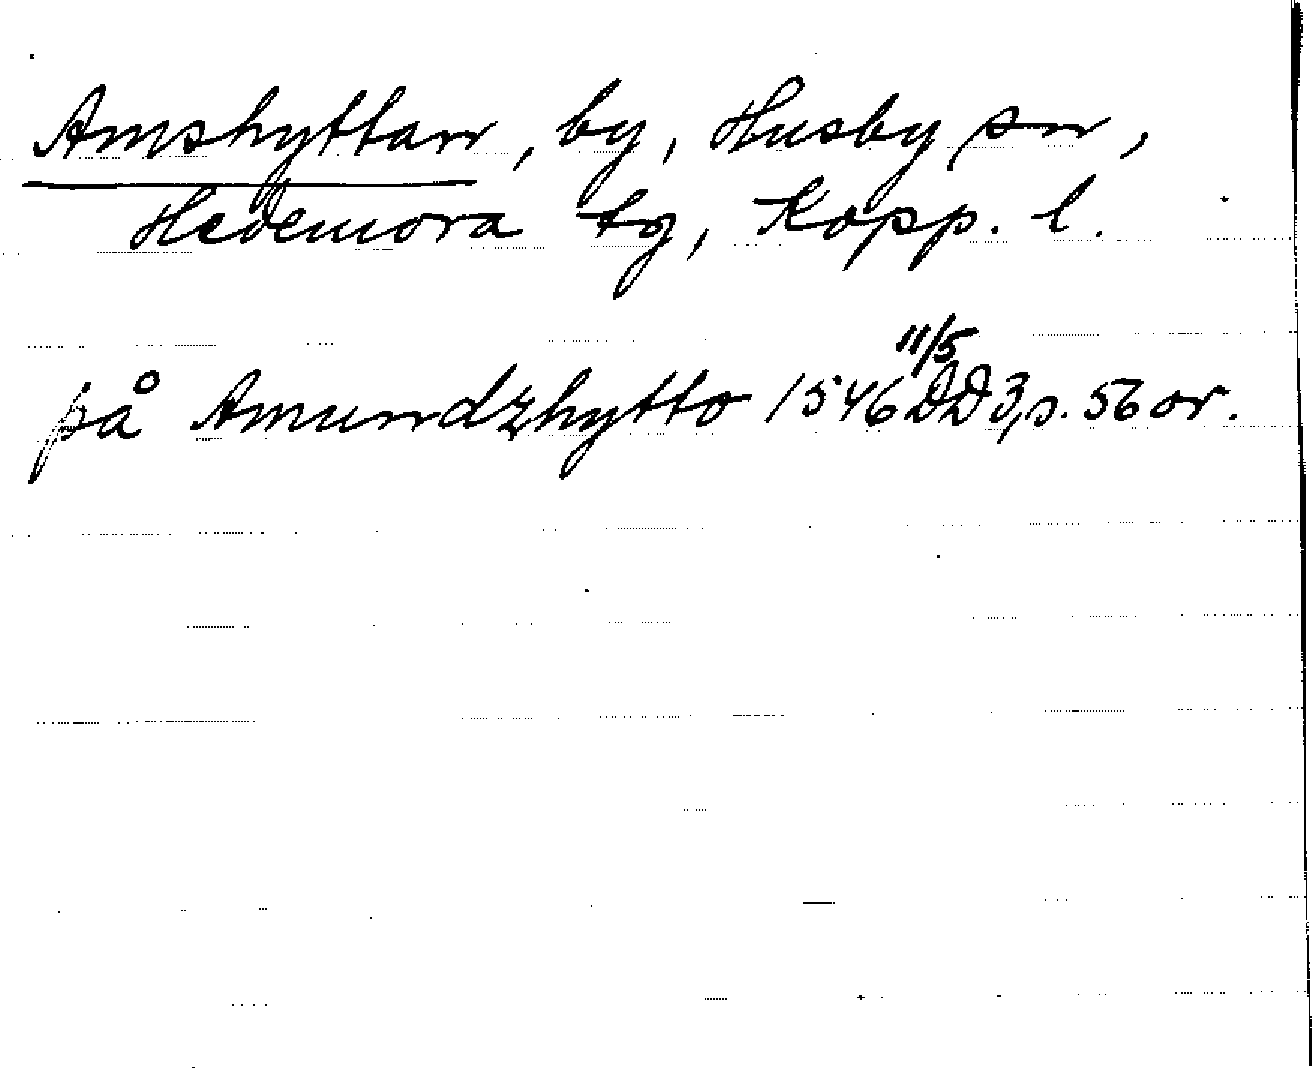 Amshyttan, by, Husby sn,
Hedemora tg, Kopp. l.
på Amundzhytto 1546 11/5 DD 3, s. 56 or.